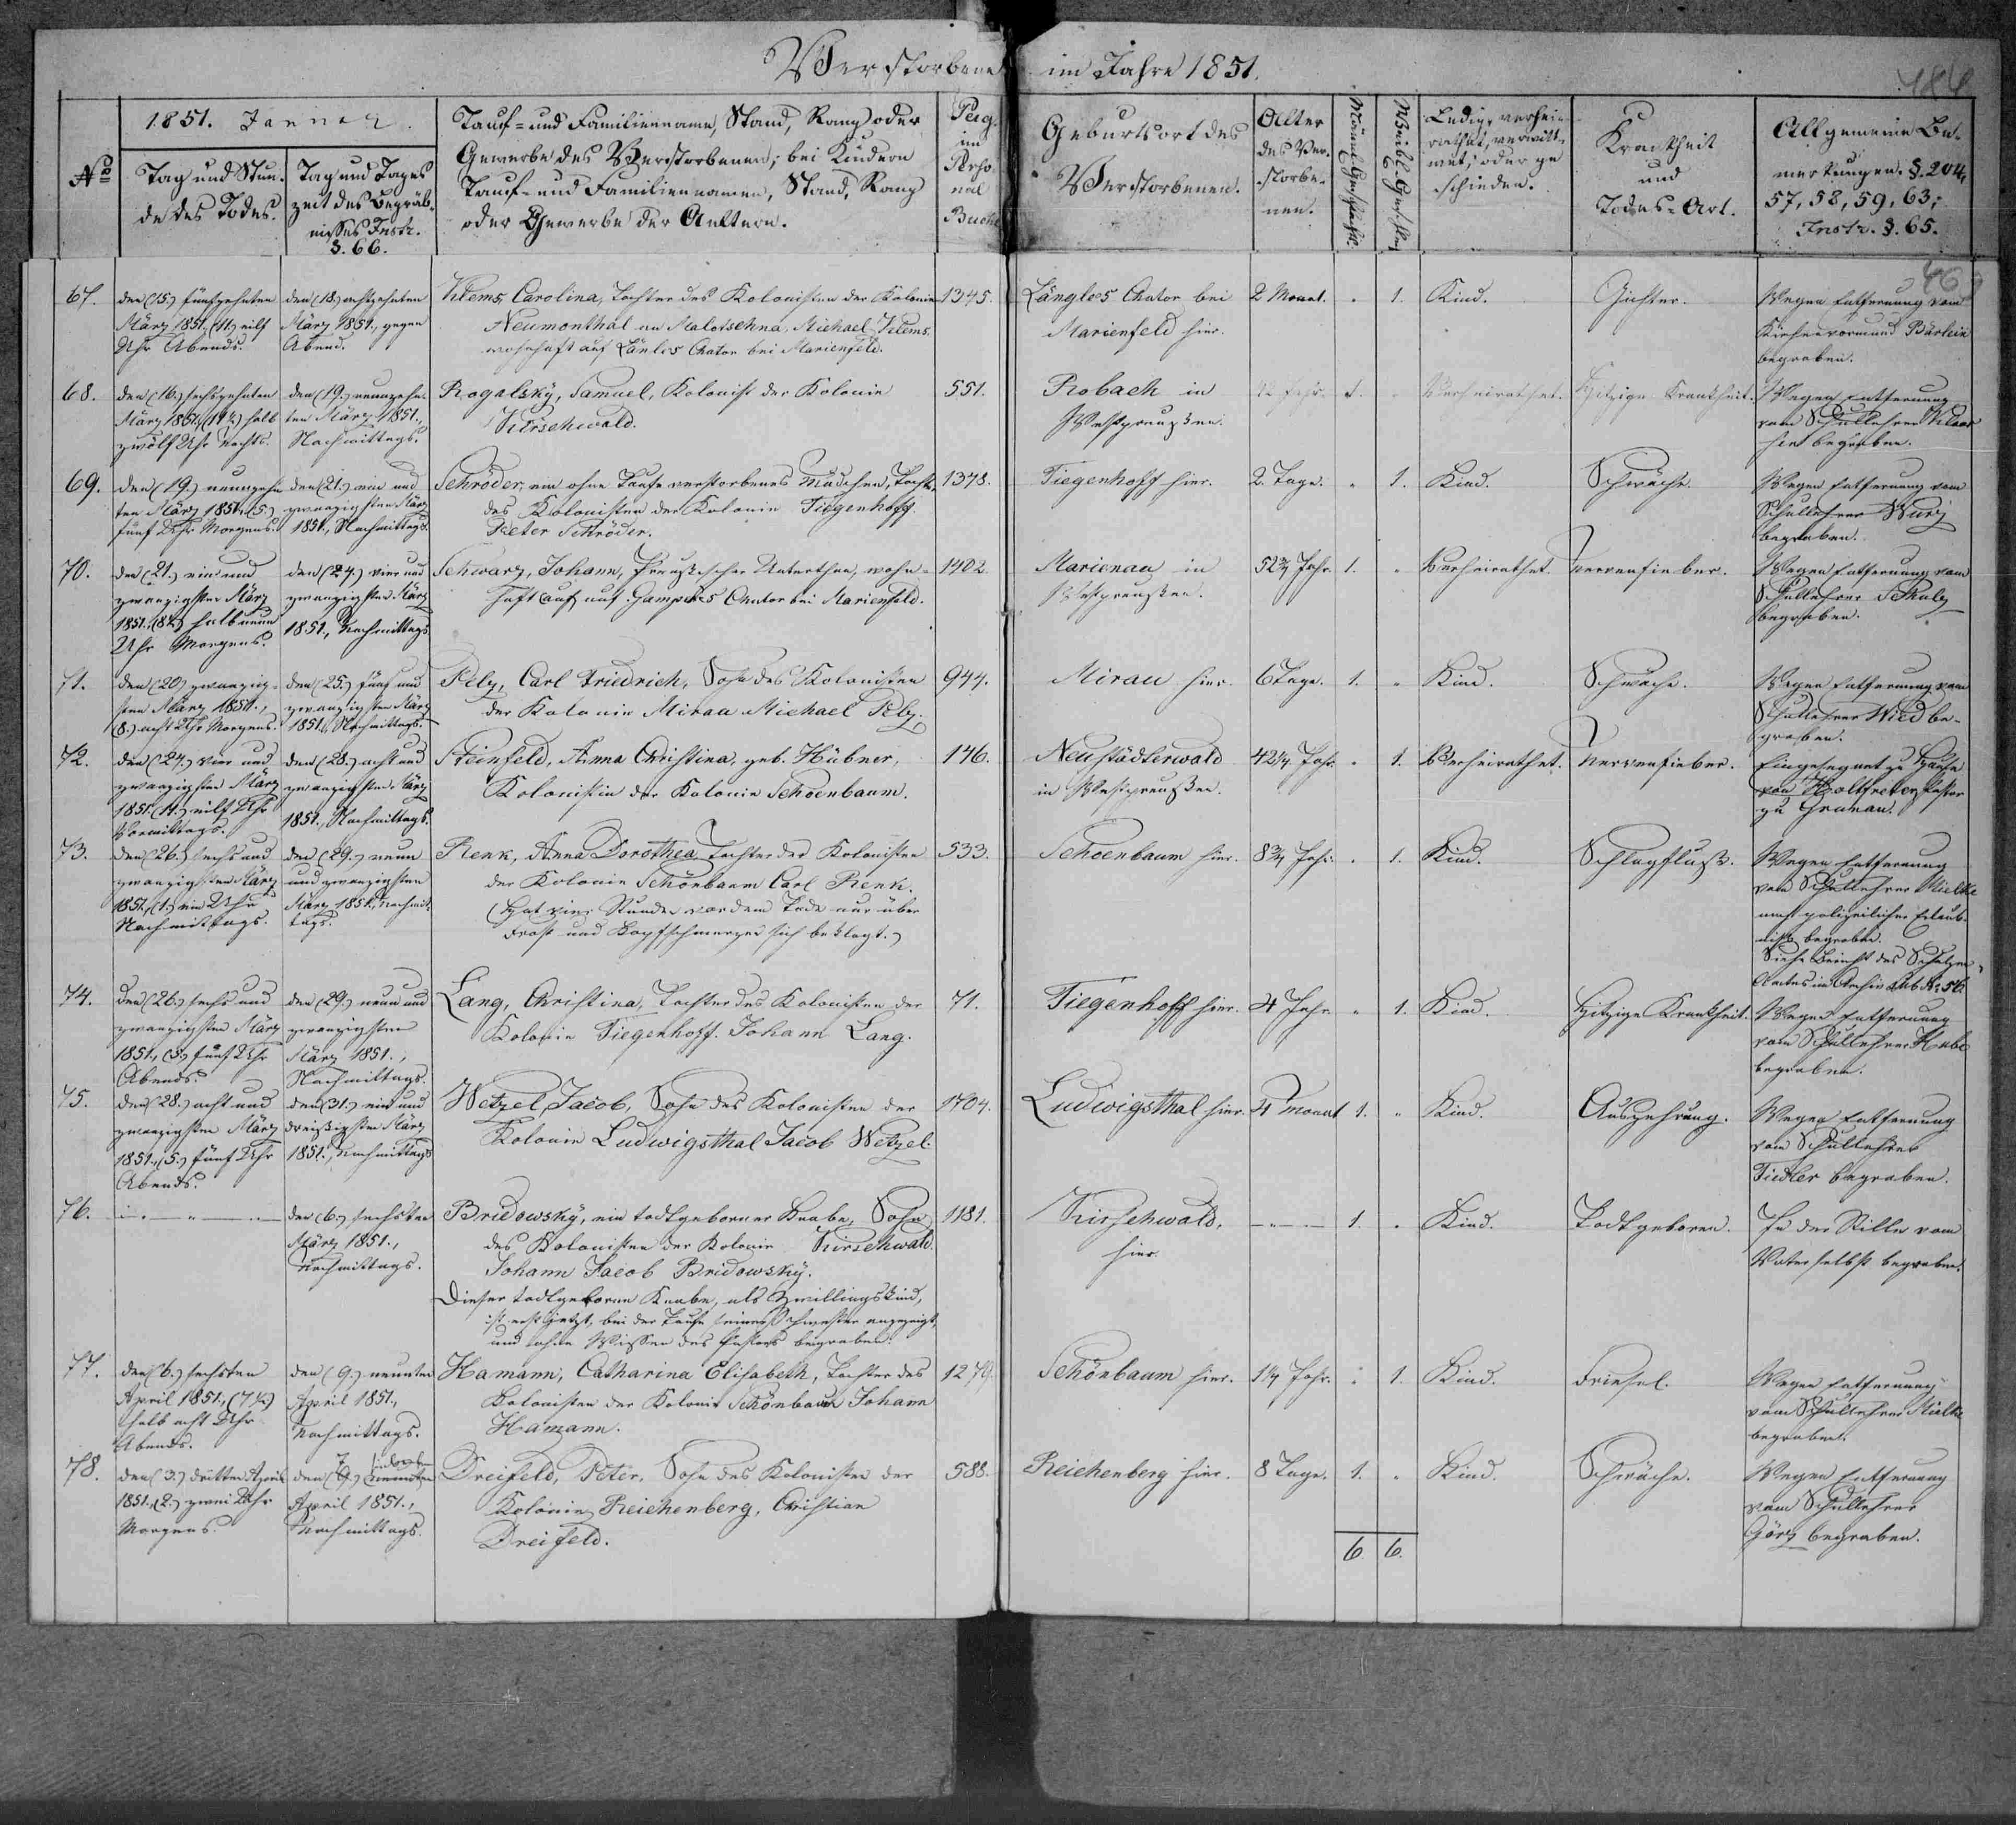 Verstorbene im Jahre 1851.
484
46
No
1851. Janner.
Tag und Stun-
de des Todes.
Tag und Tages
zeit des Begräb-
nisses Instr.
§. 66.
Tauf- und Familienname, Stand, Rang oder
Gewerbe des Verstorbenen; bei Kindern
Tauf- und Familiennamen, Stand, Rang
oder Gewerbe der Aeltern.
Pag.
im
Perso-
nal
Buche
Geburtsort des
Verstorbenen.
Alter
des Ver-
storbe-
nen.
Männl. Geschlecht.
Weibl. Geschlecht
Ledig, verhei-
rathet, verwitt-
wet, oder ge
schieden.
Krankheit
und
Todes-Art.
Allgemeine Be-
merkungen. §. 204,
57, 58, 59, 63,
Instr. §. 65.
67.
den (15.) fünfzehnten
März 1851, (11.) eilf
Uhr Abends.
den (18.) achtzehnten
März 1851, gegen
Abend.
Klems, Carolina, Tochter des Kolonisten der Kolonie
Neumonthal an Malotschna, Michael Klems,
wohnhaft auf Chutor bei Marienfeld.
1345.
Chutor bei
Marienfeld hier.
2 Monat.
1.
Kind.
Gichter.
Wegen Entfernung vom
Kirchenvormund Bärlein
begraben.
68.
den (16.) sechszehnten
März 1851, (11½) halb
zwölf Uhr Nachts.
den (19.) neunzehn-
ten März 1851.,
Nachmittags.
Rogalsky, Samuel, Kolonist der Kolonie
Kirschwald.
551.
Robach in
Westpreußen.
Jahr.
1.
Verheirathet.
Hitzige Krankheit.
Wegen Entfernung
vom Schullehrer
hier begraben.
69.
den (19.) neunzehn
ten März 1851, (5.)
fünf Uhr Morgens.
den (21.) ein und
zwanzigsten März
1851., Nachmittags.
Schröder, ein ohne Taufe verstorbenes Mädchen, Tochter
des Kolonisten der Kolonie Tiegenhoff
Peter Schröder.
1378.
Tiegenhoff hier.
2 Tage.
1.
Kind.
Schwäche.
Wegen Entfernung vom
Schullehrer Wurz
begraben.
70.
den (21.) ein und
zwanzigsten März
1851. (8½) halb neun
Uhr Morgens.
den (24.) vier und
zwanzigsten März
1851., Nachmittags
Schwarz, Johann, Preußischer Unterthan, wohn-
haft auf Chutor bei Marienfeld.
1402
Marienau in
Westpreußen.
52¾ Jahr.
1.
Verheirathet.
Nervenfieber.
Wegen Entfernung vom
Schullehrer Schulz
begraben.
71.
den (20.) zwanzig-
sten März 1851.,
(8.) acht Uhr Morgens.
den (25.) fünf und
zwanzigsten März
1851., Nachmittags.
Pelz, Carl Friedrich, Sohn des Kolonisten
der Kolonie Mirau Michael Pelz.
944.
Mirau hier.
6 Tage.
1.
Kind.
Schwäche.
Wegen Entfernung vom
Schullehrer Wied be-
graben.
72.
den (24.) vier und
zwanzigsten März
1851. (11.) eilf Uhr
Vormittags.
den (28.) acht und
zwanzigsten März
1851., Nachmittags.
Steinfeld, Anna Christina, geb. Hübner,
Kolonistin der Kolonie Schoenbaum.
146.
Neustädterwald
in Westpreußen.
42¼ Jahr.
1.
Verheirathet.
Nervenfieber.
Eingesegnet zu Hause
von Holtfreter Pastor
zu Grunau.
73.
den (26.) sechs und
zwanzigsten März
1851., (1.) ein Uhr
Nachmittags.
den (29.) neun
und zwanzigsten
März 1851., Nachmit-
tags.
Renk, Anna Dorothea, Tochter des Kolonisten
der Kolonie Schönbaum Carl Renk.
(Hat vier Stunden vor dem Tode nur über
Frost und Kopfschmerzen sich beklagt.)
533.
Schoenbaum hier.
8¾ Jahr.
1.
Kind.
Schlagfluß.
Wegen Entfernung
vom Schullehrer Mielke
nach polizeilicher Erlaub-
niß begraben.
Siehe Bericht des Schulzen-
Amtes im Archiv sub No. 56.
74.
den (26.) sechs und
zwanzigsten März
1851., (5.) fünf Uhr
Abends.
den (29.) neun und
zwanzigsten
März 1851.,
Nachmittags.
Lang, Christina, Tochter des Kolonisten der
Kolonie Tiegenhoff. Johann Lang.
71.
Tiegenhoff hier.
4 Jahr
1.
Kind.
Hitzige Krankheit.
Wegen Entfernung
vom Schullehrer
begraben.
75.
den (28.) acht und
zwanzigsten März
1851., (5.) fünf Uhr
Abends.
den (31.) ein und
dreißigsten März
1851., Nachmittags
Wetzel, Jacob, Sohn des Kolonisten der
Kolonie Ludwigsthal Jacob Wetzel.
1704.
Ludwigsthal hier.
4 Monat
1.
Kind.
Auszehrung.
Wegen Entfernung
vom Schullehrer
Fiedler begraben.
76.
den (6.) sechsten
März 1851.,
Nachmittags.
Bridowsky, ein todtgeborner Knabe, Sohn
des Kolonisten der Kolonie Kirschwald.
Johann Jacob Bridowsky.
Dieser todtgeborne Knabe, als Zwillingskind,
ist erst jetzt, bei der Taufe seiner Schwester angezeigt,
und ohne Wissen des Pastors begraben.
1181.
Kirschwald,
hier.
1.
Kind.
Todtgeboren.
In der Stille vom
Vater selbst begraben.
77.
den (6.) sechsten
April 1851., (7½)
halb acht Uhr
Abends.
den (9.) neunten
April 1851.,
Nachmittags.
Hamann, Catharina Elisabeth, Tochter des
Kolonisten der Kolonie Schönbaum Johann
Hamann.
1279.
Schönbaum hier.
1¼ Jahr.
1.
Kind.
Friesel.
Wegen Entfernung
vom Schullehrer Mielke
begraben.
78.
den (3.) dritten April
1851., (2.) zwei Uhr
Morgens.
7 siebenten
den (9.) neunten
April 1851.,
Nachmittags.
Dreifeld, Peter, Sohn des Kolonisten der
Kolonie Reichenberg, Christian
Dreifeld.
588.
Reichenberg hier.
8 Tage.
1.
Kind.
Schwäche.
Wegen Entfernung
vom Schullehrer
Görz begraben.
6
6.